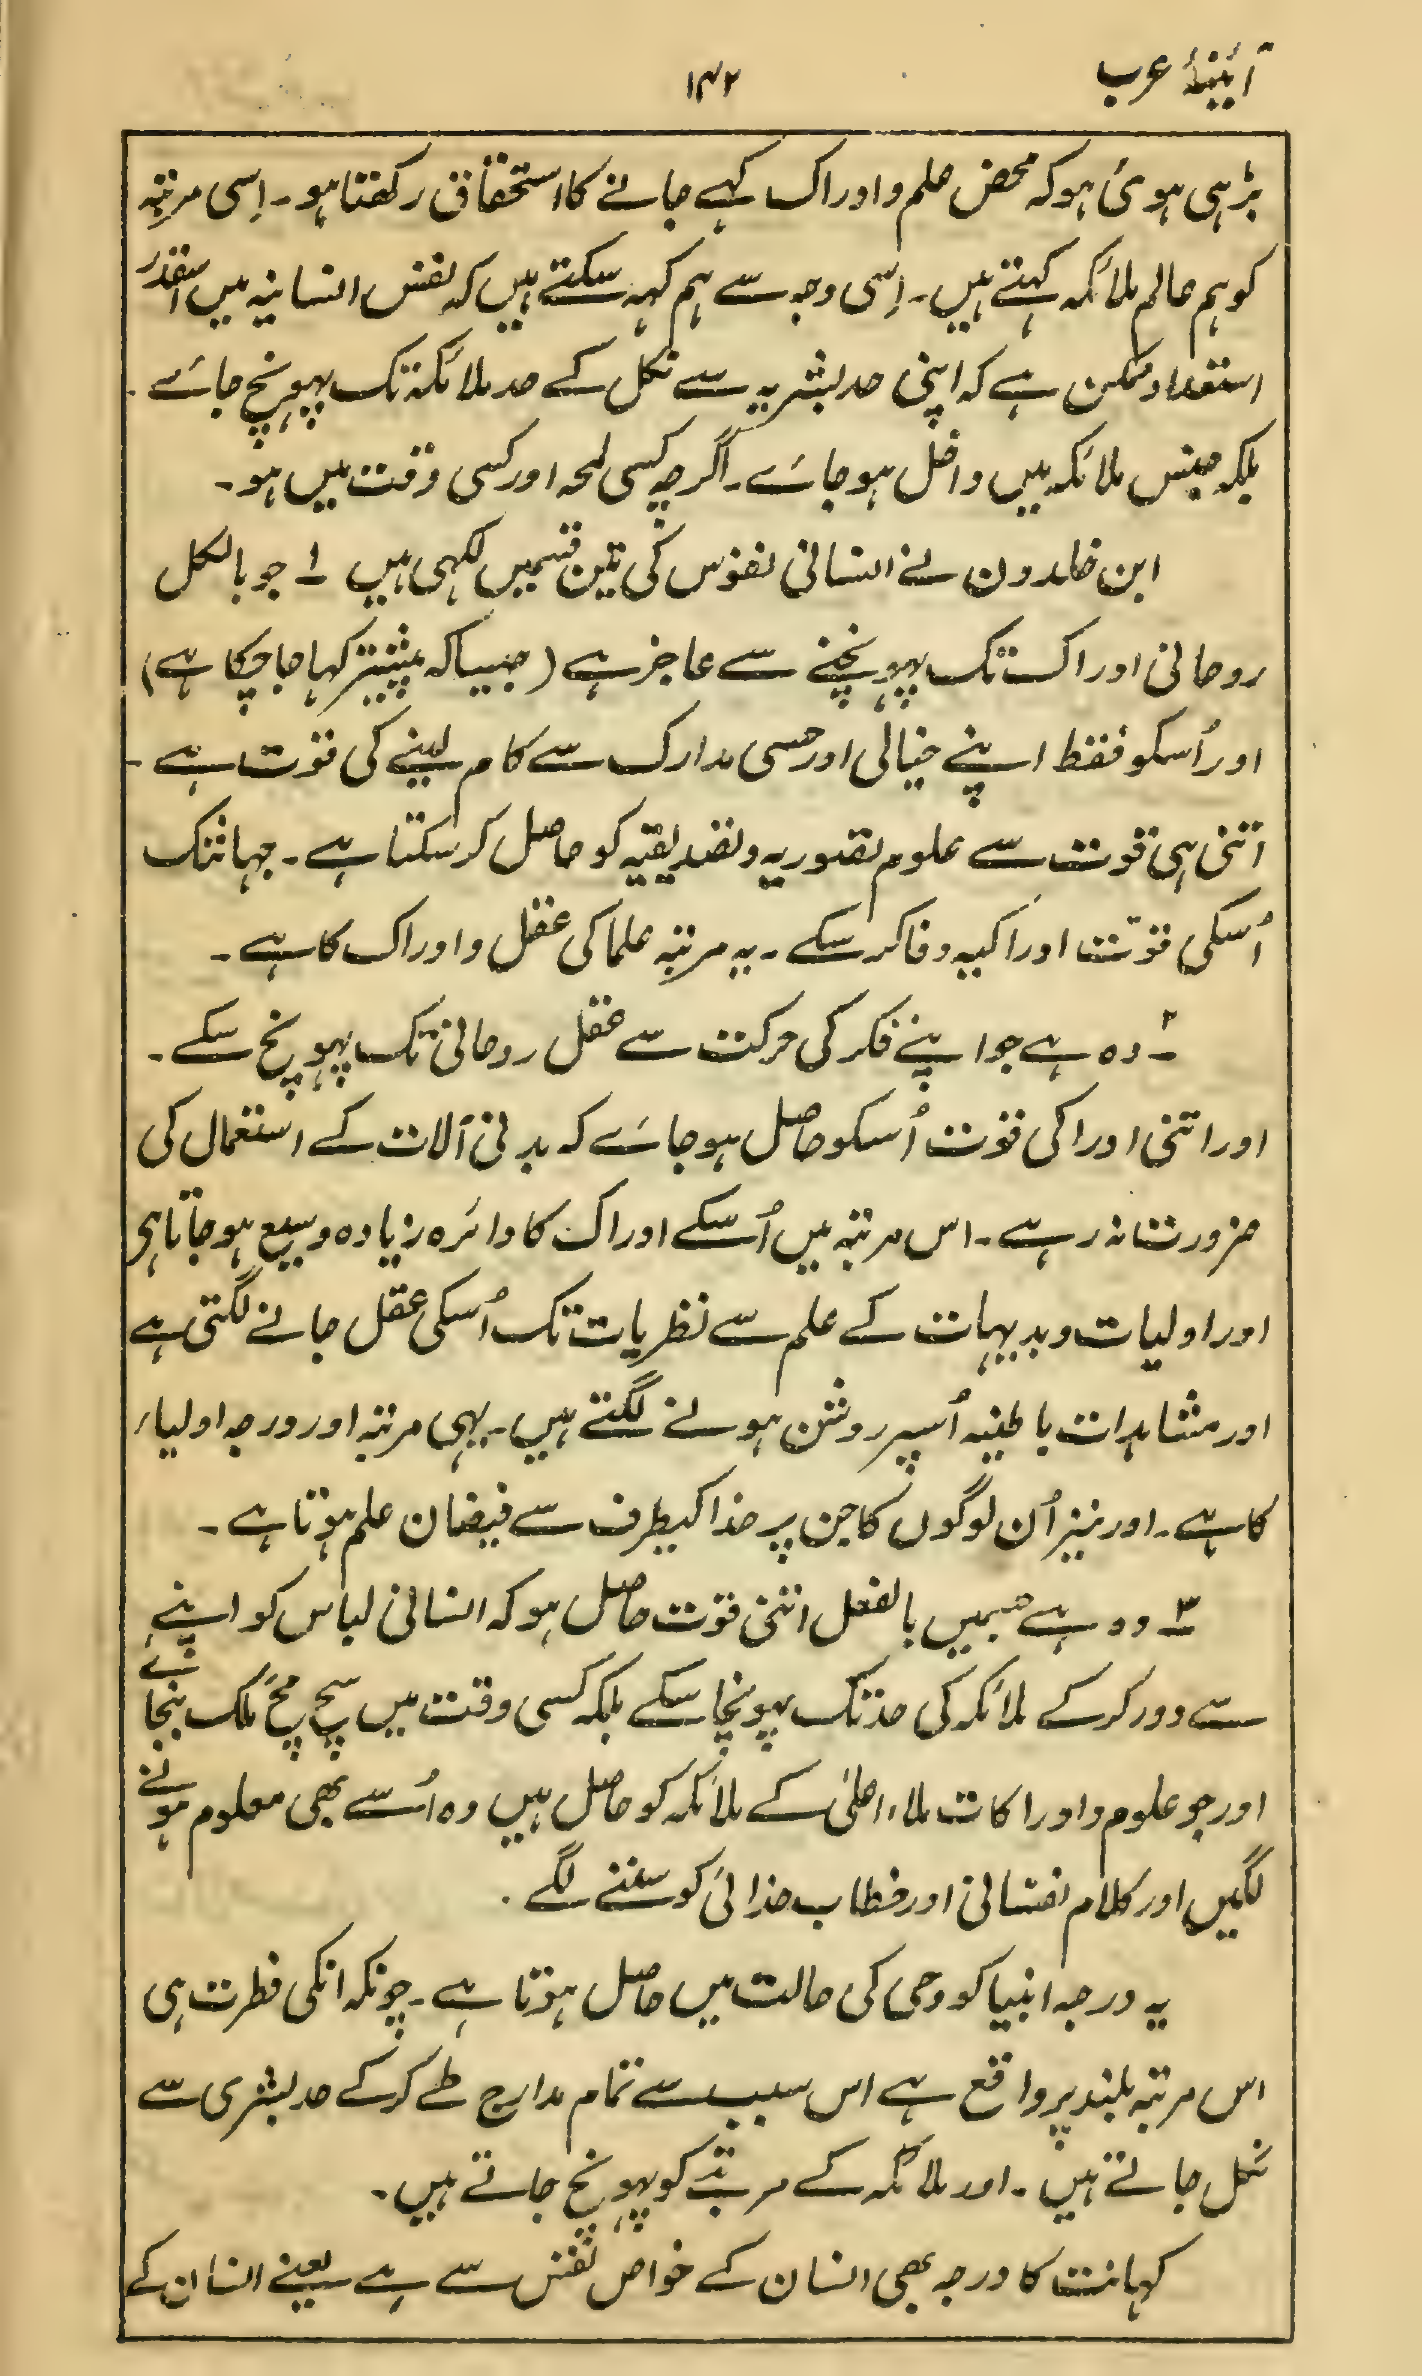 آئینۂ عرب
۱۴۲
بڑہی ہوئی ہو کہ محض علم و ادراک کہے جانے کا استحقاق رکھتا ہو۔ اِسی مرتبہ
کو ہم عالم ملائکہ کہتے ہیں۔ اِسی وجہ سے ہم کہہ سکتے ہیں کہ نفس انسانیہ میں اسقدر
استعداد ممکن ہے کہ اپنی حد بشریہ سے نکل کے حد ملائکہ تک پہونچ جائے۔
بلکہ جنس ملائکہ میں داخل ہو جائے۔ اگرچہ کسی لمحہ اور کسی وقت میں ہو۔
ابن خلدون نے انسانی نفوس کی تین قسمیں لکہی ہیں ۱ جو بالکل
روحانی ادراک تک پہونچنے سے عاجز ہے (جیسا کہ پیشتر کہا جا چکا ہے)
اور اُسکو فقط اپنے خیالی اور حسی مدارک سے کام لینے کی قوت ہے۔
اتنی ہی قوت سے علوم تصوریہ و تصدیقیہ کو حاصل کر سکتا ہے۔ جہانتک
اُسکی قوّت ادراکیہ وفا کر سکے۔ یہ مرتبہ علما کی عقل و ادراک کا ہے۔
۲ وہ ہے جو اپنے فکر کی حرکت سے عقل روحانی تک پہونچ سکے۔
اور اتنی ادراکی قوت اُسکو حاصل ہو جائے کہ بدنی آلات کے استعمال کی
ضرورت نہ رہے۔ اس مرتبہ میں اُسکے ادراک کا دائرہ زیادہ وسیع ہو جاتا ہی
اور اولیات و بدیہات کے علم سے نظریات تک اُسکی عقل جانے لگتی ہے
اور مشاہدات باطنیہ اُسپر روشن ہونے لگتے ہیں۔ یہی مرتبہ اور درجہ اولیاء
کا ہے۔ اور نیز اُن لوگوں کا جن پر خدا کیطرف سے فیضان علم ہوتا ہے۔
۳ وہ ہے جسمیں بالفعل اتنی قوت حاصل ہو کہ انسانی لباس کو اپنے
سے دور کر کے ملائکہ کی حد تک پہونچا سکے بلکہ کسی وقت میں سچ مچ مَلک بنجائے
اور جو علوم و ادراکات ملاء اعلیٰ کے ملائکہ کو حاصل ہیں وہ اُسے بھی معلوم ہونے
لگیں اور کلام نفسانی اور خطاب خدائی کو سننے لگے۔
یہ درجہ انبیا کو وحی کی حالت میں حاصل ہوتا ہے۔ چونکہ انکی فطرت ہی
اس مرتبہ بلند پر واقع ہے اس سبب سے تمام مدارج طے کر کے حد بشری سے
نکل جاتے ہیں۔ اور ملائکہ کے مرتبے کو پہونچ جاتے ہیں۔
کہانت کا درجہ بھی انسان کے خواص نفس سے ہے یعنے انسان کے